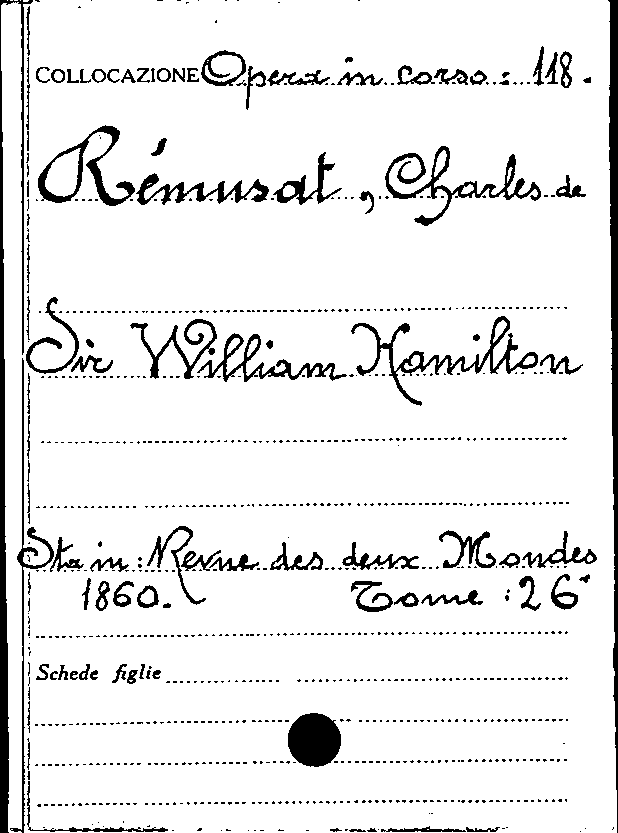 COLLOCAZIONE Opera in corso: 118.
Rémusat, Charles de
Sir William Hamilton
Sta in: Revue des deux Mondes
1860. Tome: 26°
Schede figlie